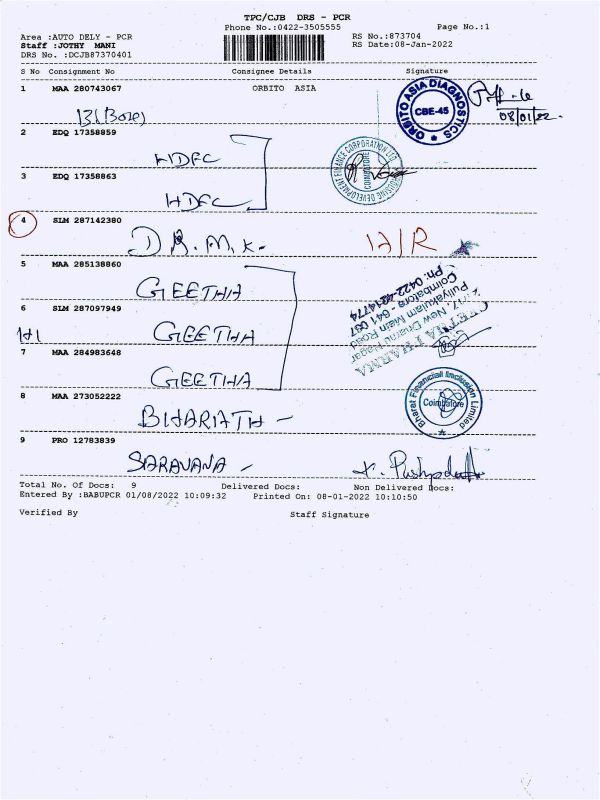 TPC/CJB DRS - PCR
Phone No.:0422-3505555 Page No.:1
Area :AUTO DELY - PCR RS No.:873704
Staff :JOTHY MANI RS Date:08-Jan-2022
DRS No. :DCJB87370401
S No Consignment No Consignee Details Signature
1 MAA 280743067 ORBITO ASIA
ORBITO ASIA DIAGNOSTICS
CBE-45
08/01/22.
13 (Boxe)
2 EDQ 17358859
HDFC
HOUSING DEVELOPMENT FINANCE CORPORATION LTD
COIMBATORE
3 EDQ 17358863
HDFC
4 SLM 287142380
D.R.M.K.
5 MAA 285138860
GEETHA
GEETHA PHARMA
New Dhamu Nagar
Puliyakulam Main Road
Coimbatore - 641 037
Ph: 0422-4214774
6 SLM 287097949
GEETHA
7 MAA 284983648
GEETHA
8 MAA 273052222
BHARATH -
Bharat Financial Inclusion Limited
Coimbatore
9 PRO 12783839
SARAVANA -
Total No. Of Docs: 9 Delivered Docs: Non Delivered Docs:
Entered By :BABUPCR 01/08/2022 10:09:32 Printed On: 08-01-2022 10:10:50
Verified By Staff Signature